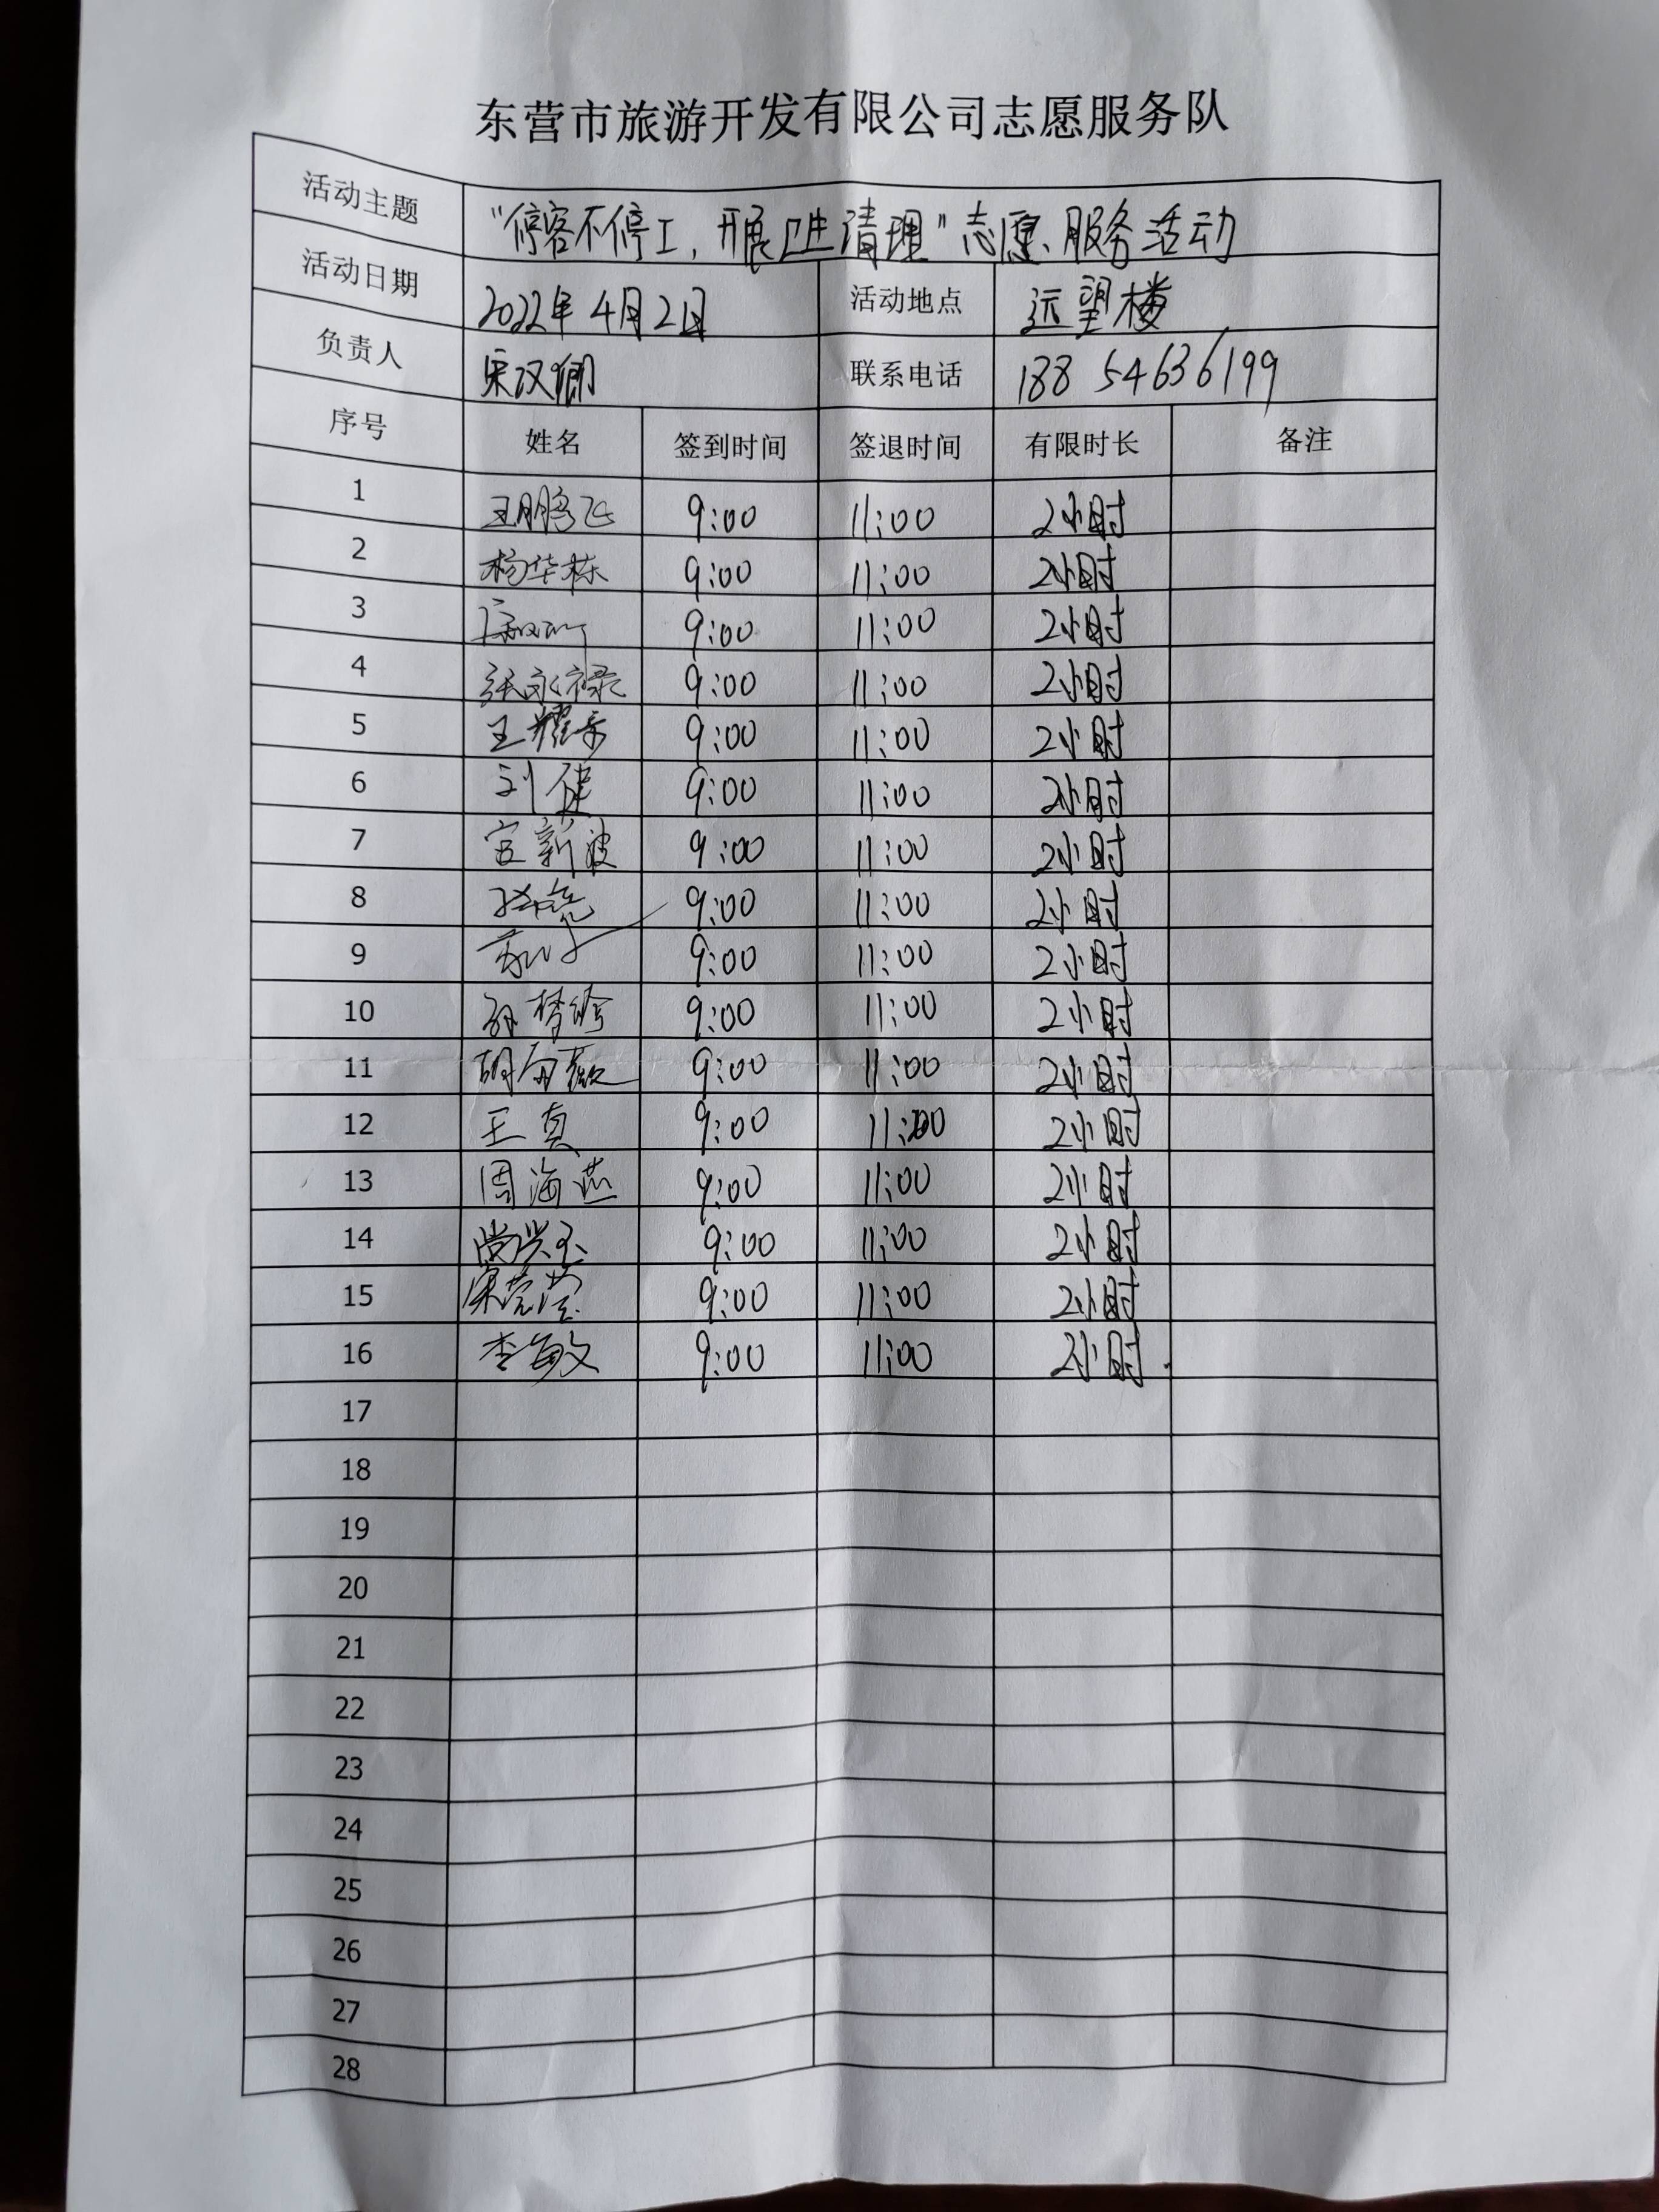 东营市旅游开发有限公司志愿服务队
活动主题 “停客不停工，开展卫生清理”志愿服务活动
活动日期 2022年4月2日 活动地点 远望楼
负责人 宋汉卿 联系电话 188 54636199
序号 姓名 签到时间 签退时间 有限时长 备注
1 王鹏飞 9:00 11:00 2小时
2 杨华栋 9:00 11:00 2小时
3 9:00 11:00 2小时
4 张永禄 9:00 11:00 2小时
5 王耀 9:00 11:00 2小时
6 刘健 9:00 11:00 2小时
7 宫新波 9:00 11:00 2小时
8 9:00 11:00 2小时
9 9:00 11:00 2小时
10 孙梦 9:00 11:00 2小时
11 胡 9:00 11:00 2小时
12 王真 9:00 11:00 2小时
13 周海燕 9:00 11:00 2小时
14 尚洪玉 9:00 11:00 2小时
15 9:00 11:00 2小时
16 李敏 9:00 11:00 2小时
17
18
19
20
21
22
23
24
25
26
27
28